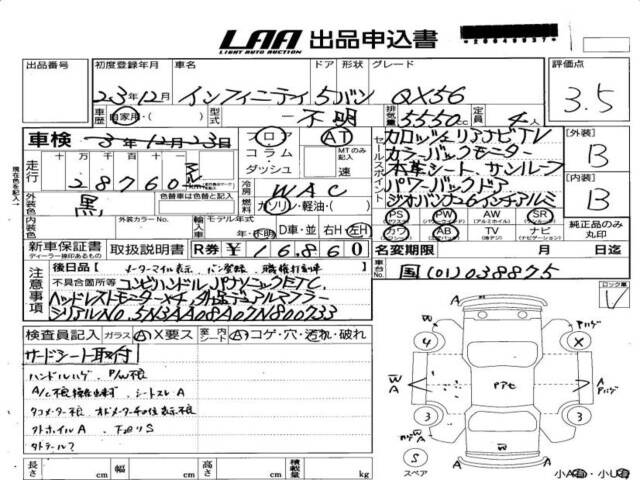 LAA 出品申込書
LIGHT AUTO AUCTION
出品番号 初度登録年月 車名 ドア 形状 グレード 評価点
23年12月 インフィニティ 5 バン QX56 3.5
車歴 自家用・( ) 型式 不明 排気量 5550cc 定員 4人
車検 3年12月23日 ロア AT
コラム MTのみ記入
ダッシュ 速
走行 十万千百十 28760
セールスポイント
カロッツェリアナビTV
カラーバックモニター
本革シート、サンルーフ
パワーバックドア
[外装] B
[内装] B
外装色 黒 色替車は色替と記入 冷房 WAC
燃料 ガソリン・軽油・( )
内装色 外装カラーNo. 輸入車 モデル年式 年・不明 D車・並 右H・左H
PS PW AW SR
カワ AB TV ナビ
純正品のみ丸印
新車保証書 取扱説明書 R券 ¥16,860 名変期限 月 日迄
ディーラー捺印あるもの
車台No. 国(01)038875
注意事項 後日品( メーターマイル表示
不具合箇所等 コンビハンドル パナソニックETC
ヘッドレストモニター×4
シリアルNO.5N3AA08A07N800733
ロック有
検査員記入 ガラス A X要ス 室内シート A コゲ・穴・汚れ・破れ
サードシート取付
ハンドルハゲ P/W不良
A/C不良 シートスレA
タコメーター不良
タトホイルA 下回りS
長さ cm 幅 cm 高さ cm 積載量 kg
4 X
W A A
3 3
W A
S
スペア
小A 有・小U 有